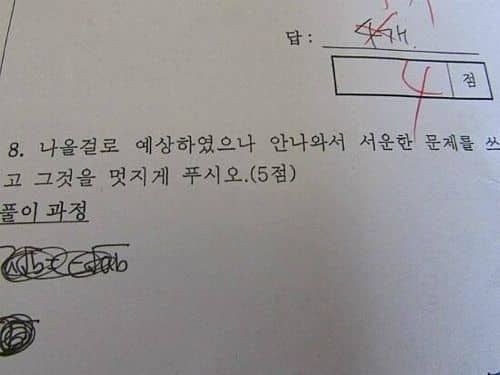 답 :
4
점
8. 나올걸로 예상하였으나 안나와서 서운한 문제를 쓰
고 그것을 멋지게 푸시오.(5점)
풀이 과정